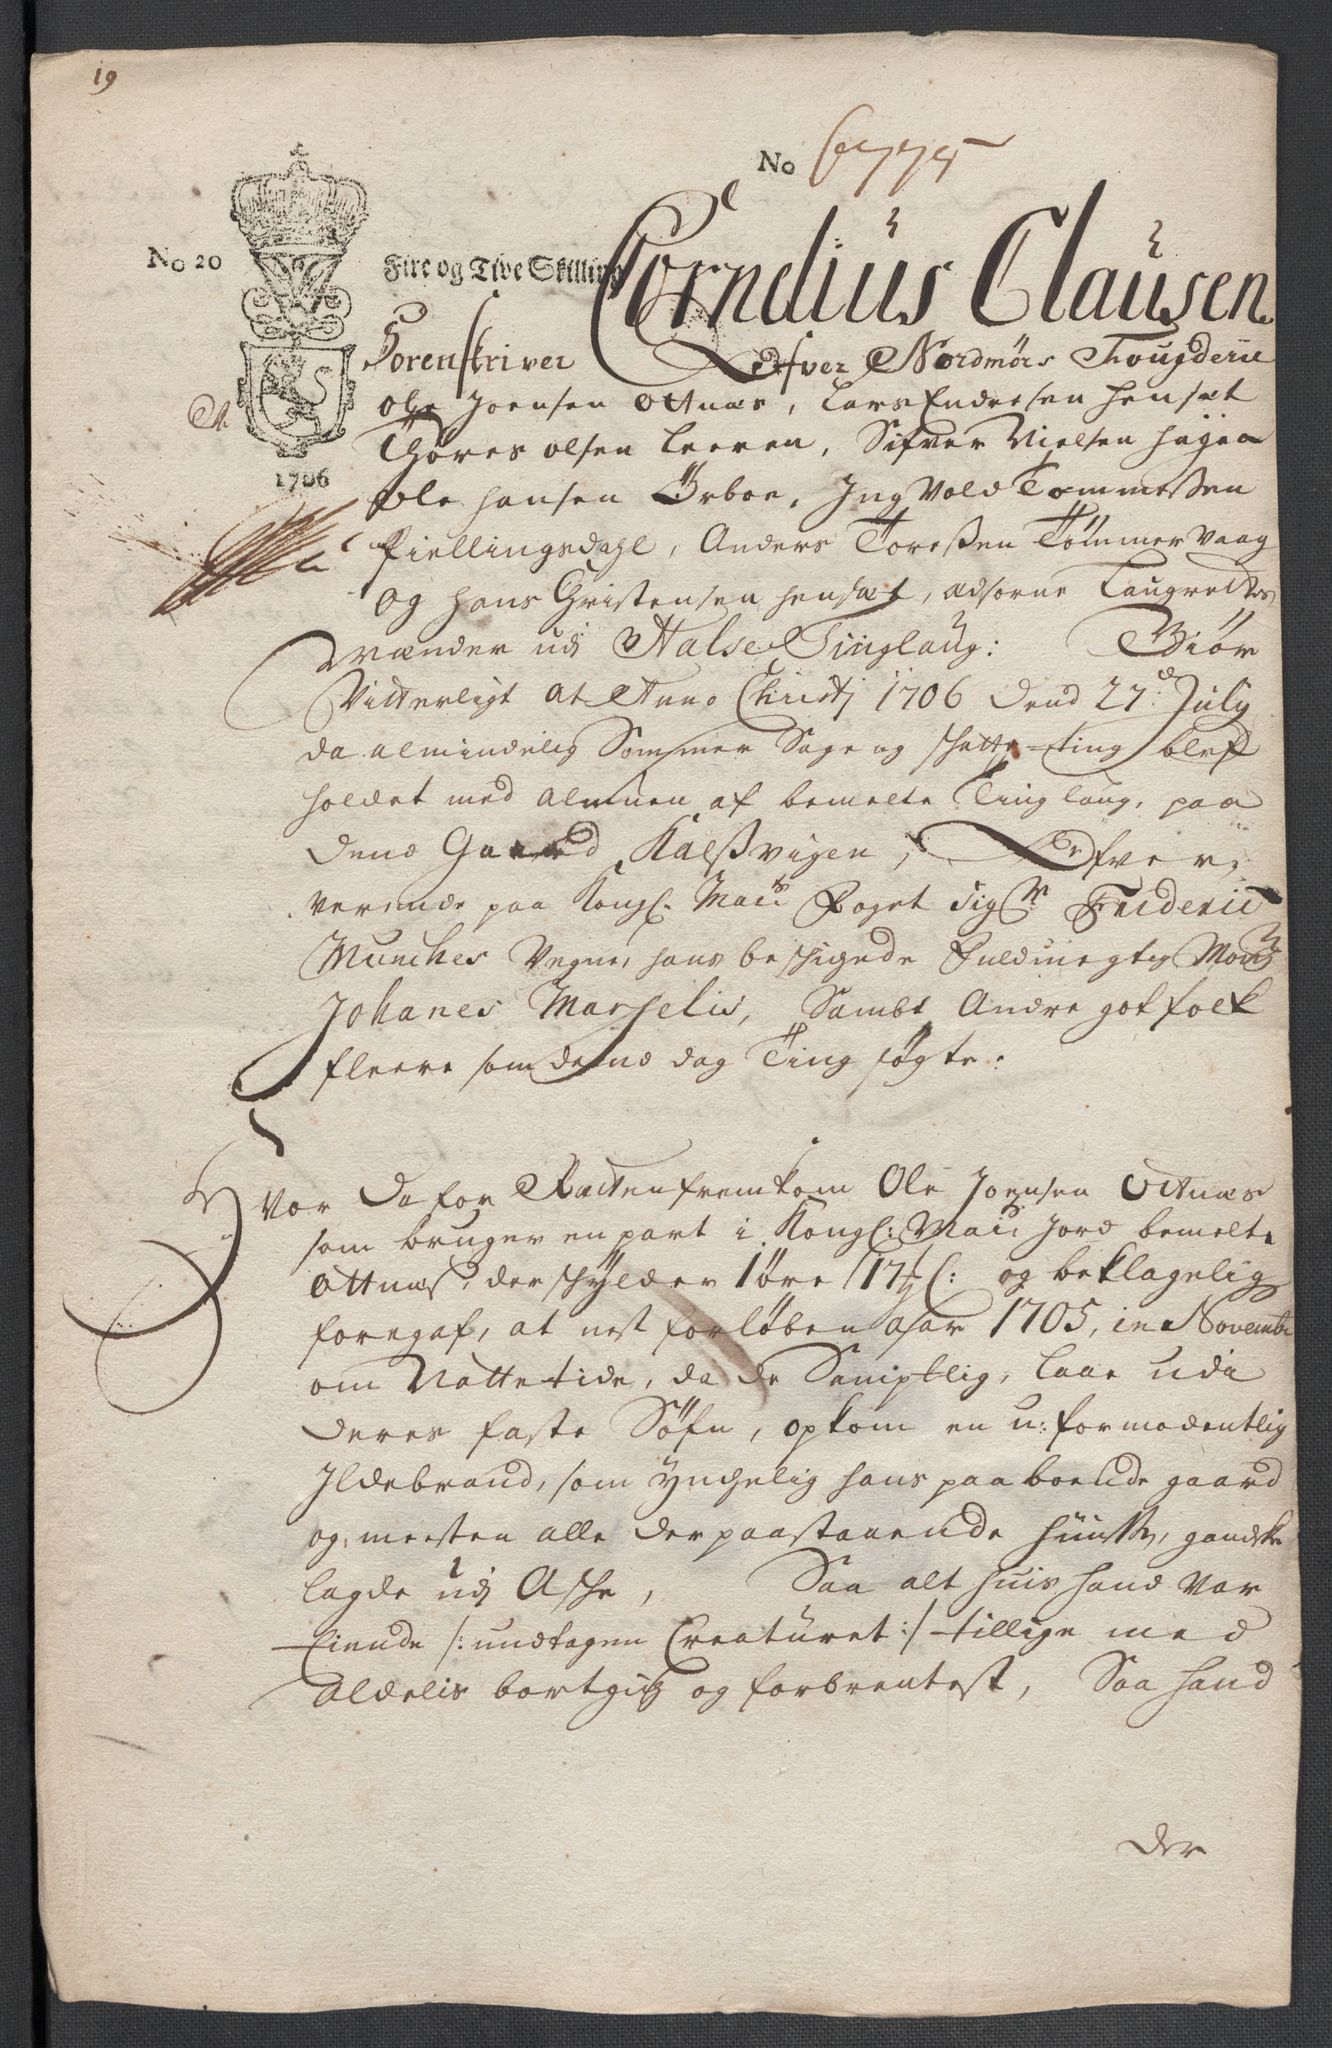 19
No 6775
No 20
Fire og Tive Skilling
Cornelius Clausen
Sorenskriver Ofver Nordmørs Fougderie
Ole Joensen Ottnæs, Lars Endresen henset
Thores olsen Leeren, Sifver Nielsen hagen
1706
Ole hansen Ørboe, Ingvold Tommesen
fiellingsdahl, Anders Toreßen Tømmervaag
og hans Christensen henset, edsorne Laugrettes
Mænder udj Halse Tinglaug: Giør
Vitterligt at Anno Christj 1706 dend 27d July
da almindelig Sommer Sage og schatte-ting blef
holdet med Almuen af bemelte Tinglaug, paa
dend Gaard Kalßvigen, Ofver,
verende paa Kongl. Maits Foget Sigr Frideric
Munches Vegne, hans beschigede Fuldmegtig Monsr
Johanes Marselis, Sambt Andre got folk
fleere som dend dag Ting søgte.
Vor da for Rætten fremkom Ole Joensen Ottnæs
som bruger en part i Kongl: Maits Jord bemelte
Ottnæs, der schylder 1 øre 17½ l: og beklagelig
foregaf, at nest forløben aar 1705, in Novembr
om Nattetide, da de Samptlig, laae udi
deres faste Søfn, opkom en u:formodentlig
Ildebrand, som ynchelig hans paaboende gaard
og meesten alle der paastaaende huuse, gandske
lagde udj Asche, Saa alt huis hand var
Eiende /: undtagen Creaturet :/ tillige med
Aldelis bortgik og forbrentest, Saa hand
der